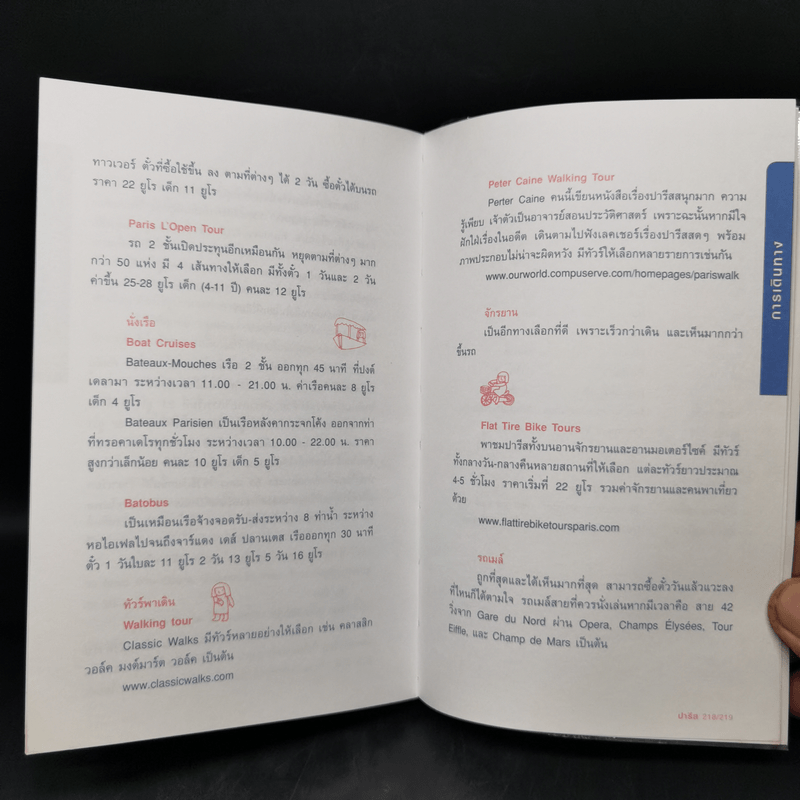 ทาวเวอร์ ตั๋วที่ซื้อใช้ขึ้น ลง ตามที่ต่างๆ ได้ 2 วัน ซื้อตั๋วได้บนรถ
ราคา 22 ยูโร เด็ก 11 ยูโร
Paris L'Open Tour
รถ 2 ชั้นเปิดประทุนอีกเหมือนกัน หยุดตามที่ต่างๆ มาก
กว่า 50 แห่ง มี 4 เส้นทางให้เลือก มีทั้งตั๋ว 1 วันและ 2 วัน
ค่าขึ้น 25-28 ยูโร เด็ก (4-11 ปี) คนละ 12 ยูโร
นั่งเรือ
Boat Cruises
Bateaux-Mouches เรือ 2 ชั้น ออกทุก 45 นาที ที่ปงต์
เดลามา ระหว่างเวลา 11.00 - 21.00 น. ค่าเรือคนละ 8 ยูโร
เด็ก 4 ยูโร
Bateaux Parisien เป็นเรือหลังคากระจกโค้ง ออกจากท่า
ที่ทรอคาเดโรทุกชั่วโมง ระหว่างเวลา 10.00 - 22.00 น. ราคา
สูงกว่าเล็กน้อย คนละ 10 ยูโร เด็ก 5 ยูโร
Batobus
เป็นเหมือนเรือจ้างจอดรับ-ส่งระหว่าง 8 ท่าน้ำ ระหว่าง
หอไอเฟลไปจนถึงจาร์แดง เดส์ ปลานเตส เรือออกทุก 30 นาที
ตั๋ว 1 วันใบละ 11 ยูโร 2 วัน 13 ยูโร 5 วัน 16 ยูโร
ทัวร์พาเดิน
Walking tour
Classic Walks มีทัวร์หลายอย่างให้เลือก เช่น คลาสสิก
วอล์ค มงต์มาร์ต วอล์ค เป็นต้น
www.classicwalks.com
Peter Caine Walking Tour
Perter Caine คนนี้เขียนหนังสือเรื่องปารีสสนุกมาก ความ
รู้เพียบ เจ้าตัวเป็นอาจารย์สอนประวัติศาสตร์ เพราะฉะนั้นหากมีใจ
ฝักใฝ่เรื่องในอดีต เดินตามไปฟังเลคเชอร์เรื่องปารีสสดๆ พร้อม
ภาพประกอบไม่น่าจะผิดหวัง มีทัวร์ให้เลือกหลายรายการเช่นกัน
www.ourworld.compuserve.com/homepages/pariswalk
จักรยาน
เป็นอีกทางเลือกที่ดี เพราะเร็วกว่าเดิน และเห็นมากกว่า
ขึ้นรถ
Flat Tire Bike Tours
พาชมปารีสทั้งบนอานจักรยานและอานมอเตอร์ไซค์ มีทัวร์
ทั้งกลางวัน-กลางคืนหลายสถานที่ให้เลือก แต่ละทัวร์ยาวประมาณ
4-5 ชั่วโมง ราคาเริ่มที่ 22 ยูโร รวมค่าจักรยานและคนพาเที่ยว
ด้วย
www.flattirebiketoursparis.com
รถเมล์
ถูกที่สุดและได้เห็นมากที่สุด สามารถซื้อตั๋ววันแล้วแวะลง
ที่ไหนก็ได้ตามใจ รถเมล์สายที่ควรนั่งเล่นหากมีเวลาคือ สาย 42
วิ่งจาก Gare du Nord ผ่าน Opera, Champs Élysées, Tour
Eiffle, และ Champ de Mars เป็นต้น
การเดินทาง
ปารีส 218/219